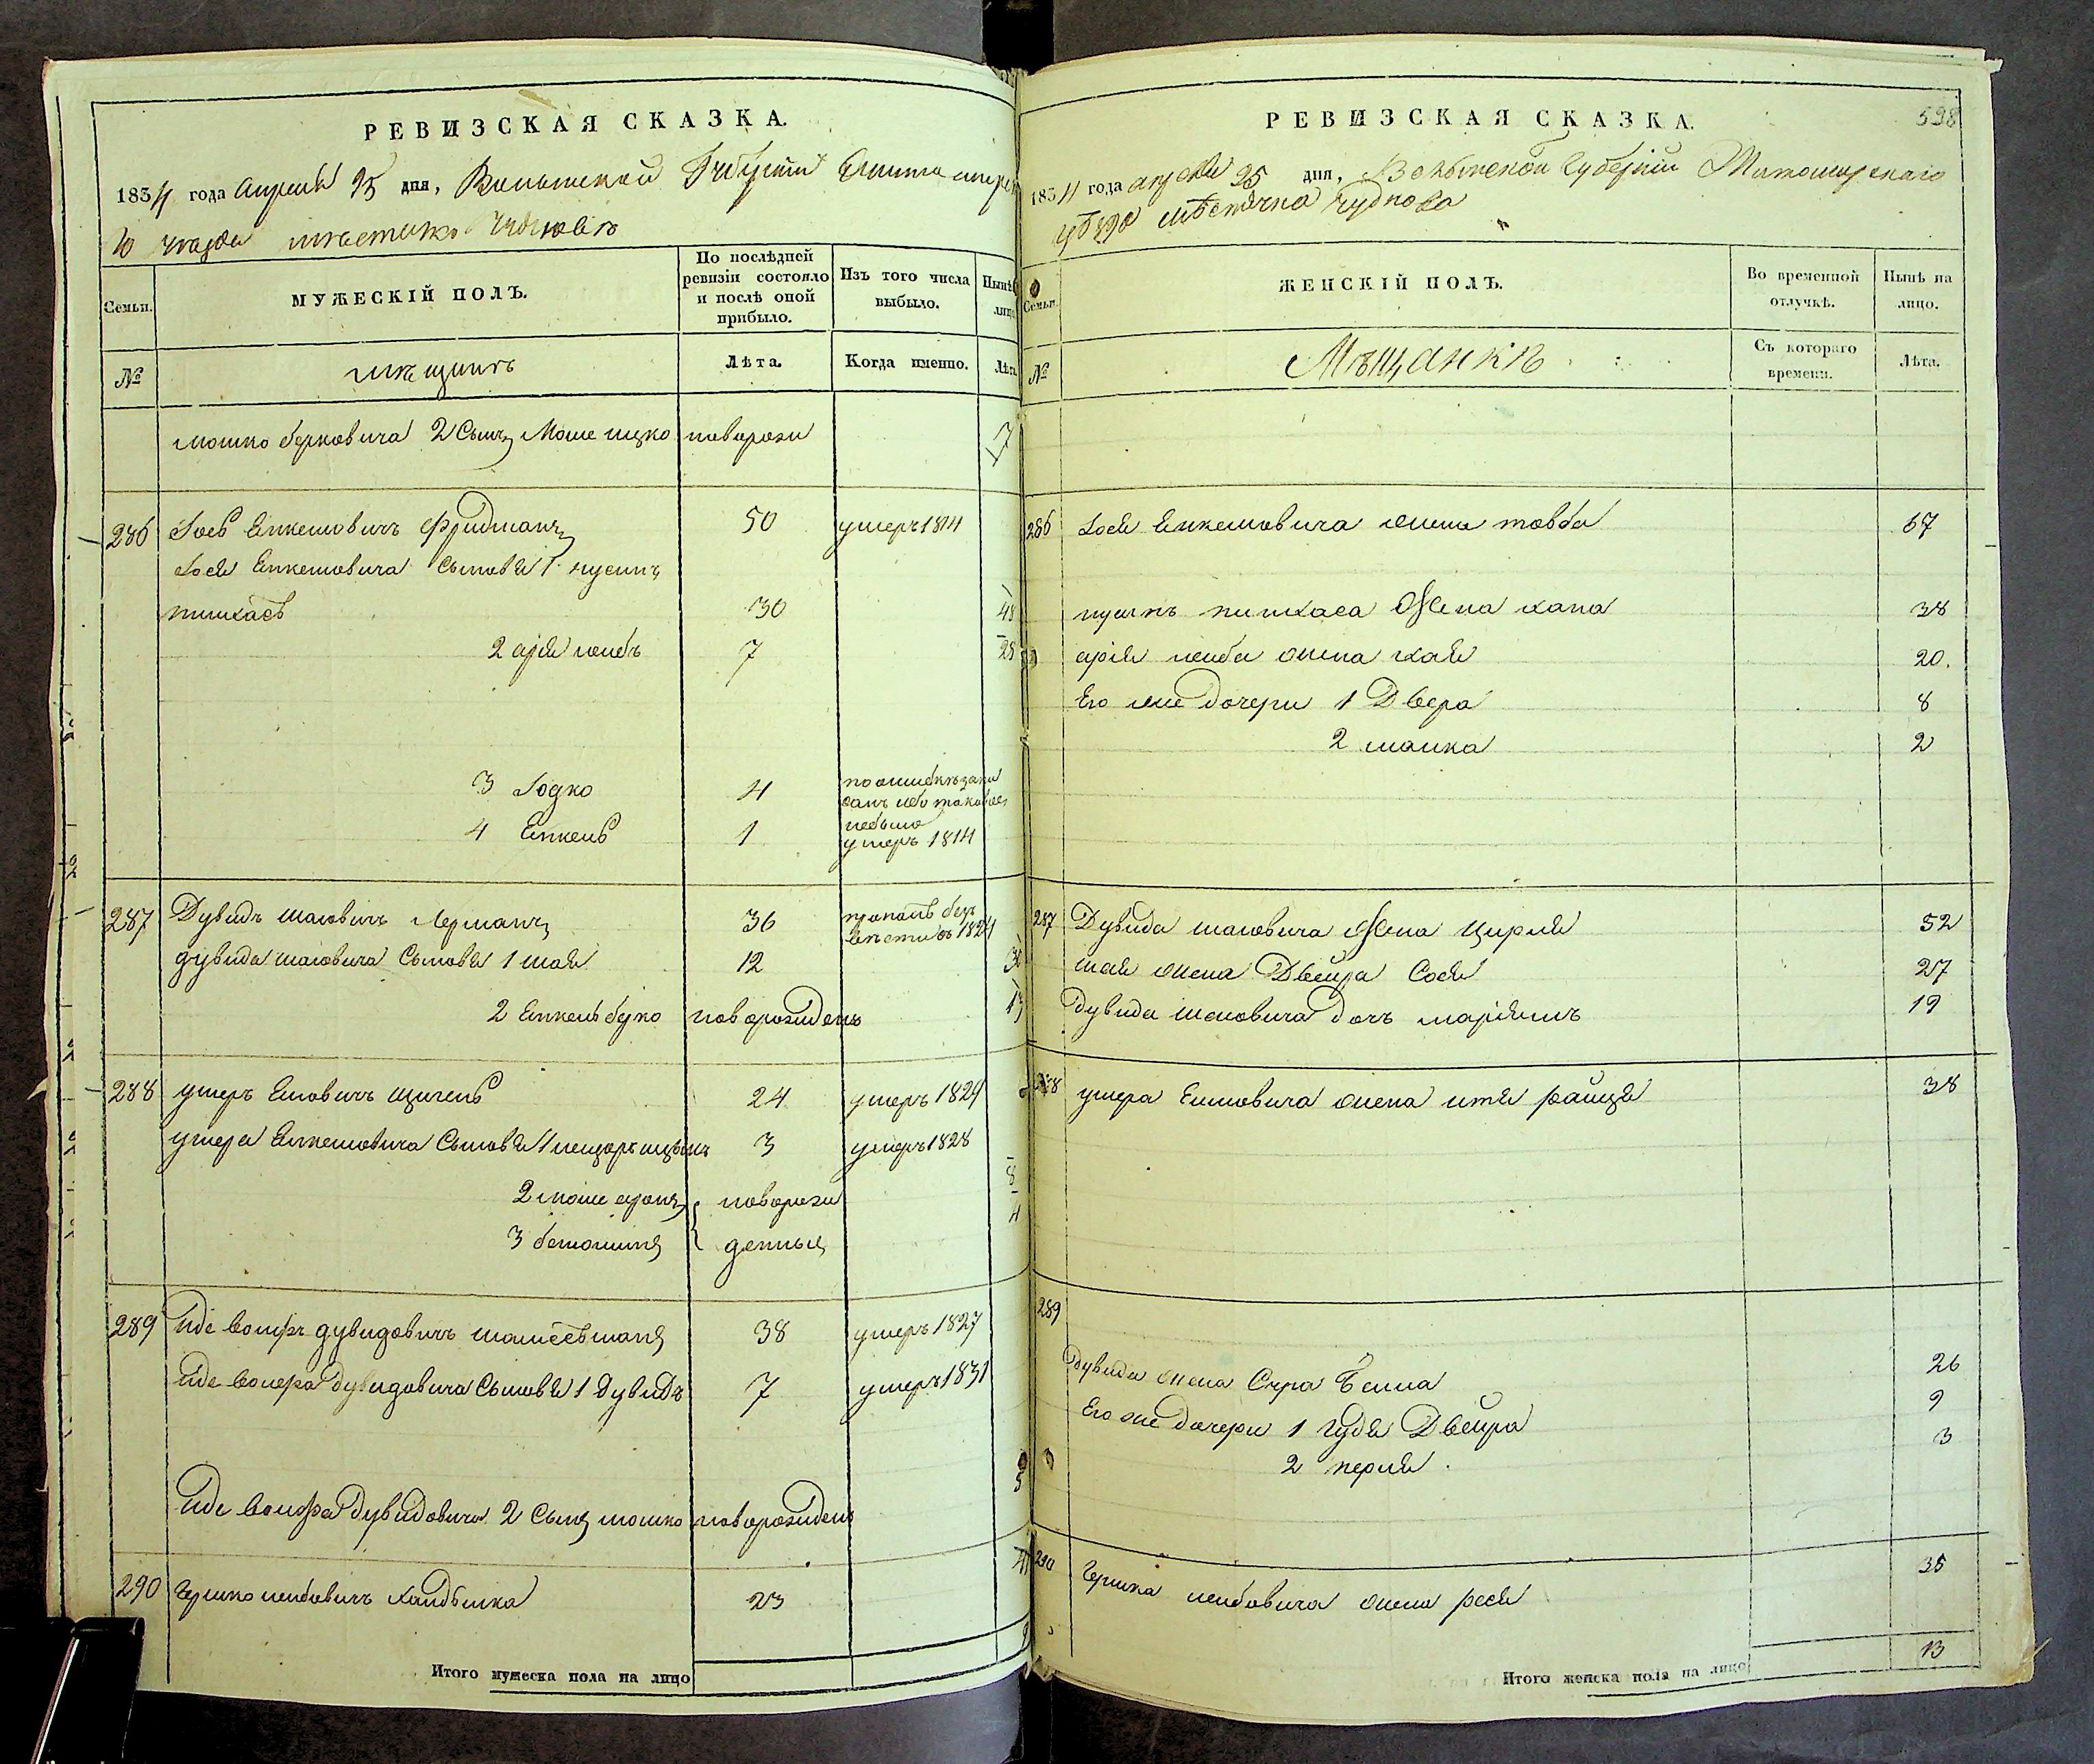 РЕВИЗСКАЯ СКАЗКА.
1834 года апреля 25 дня, Волынской Губернии Житомирска
го уезда местечко Чуднова
Семьи.
МУЖЕСКІЙ ПОЛЪ.
По послѣдней ревизіи состояло и послѣ оной прибыло.
Изъ того числа выбыло.
Нынѣ лицо
№
мещанъ
Лѣта.
Когда именно.
Лѣта
мошко берковича 2 Сынъ Моше ицко новорожи 17
286 Іось Енкелювичъ Фридманъ 50 умеръ 1814
Іося Енкелювича Сыновя 1 нусинъ
пинхасъ 30 48
2 арія лейбъ 7 28
3 Іодко 4 по ошибке запи
санъ ибо таковаго
небыло
4 Енкель 1 умеръ 1814
287 Дувидъ шаювичъ Лерманъ 36 пропалъ безъ
вести въ 1824
дувида шаювича Сыновя 1 шая 12
2 Енкель буко новорожденъ 13
288 ушеръ Елювичъ 24 умеръ 1824
ушера Енкелювича Сыновя 1 3 умеръ 1828
2 моше аронъ новорожи 8
3 бенюминъ денные 4
289 Иде волфъ дувидовичъ 38 умеръ 1827
Иде волфа дувидовича Сыновя 1 Дувидъ 7 умеръ 1831
Иде волфа Дувидовича 2 Сынъ мошко новорожденъ 5
290 Гершко лейбовичъ 23 41
Итого мужеска пола на лицо
РЕВИЗСКАЯ СКАЗКА.
598
1834 года апреля 25 дня, Волынской Губерніи Житомирскаго
уѣзда мѣстечка Чуднова
Семьи.
ЖЕНСКІЙ ПОЛЪ.
Во временной отлучкѣ.
Нынѣ на лицо.
№
Мѣщанкѣ
Съ котораго времени.
Лѣта.
286 Іося Енкелювича жена товба 67
нусинъ пинхаса Жена хана 38
арія лейба жена хая 20.
Его же Дочери 1 Двера 8
2 малка 2
287 Дувида шаювича Жена Цирля 52
шаи жена Двейра Сося 27
Дувида шаювича Дочъ маріямъ 19
288 ушера Елювича жена итя райця 38
289
Дувида жена Сура Бейла 26
Его же дочери 1 Гудя Двейра 9
2 перля. 3
290 Гершка лейбовича жена рося 35
13
Итого женска пола на лицо